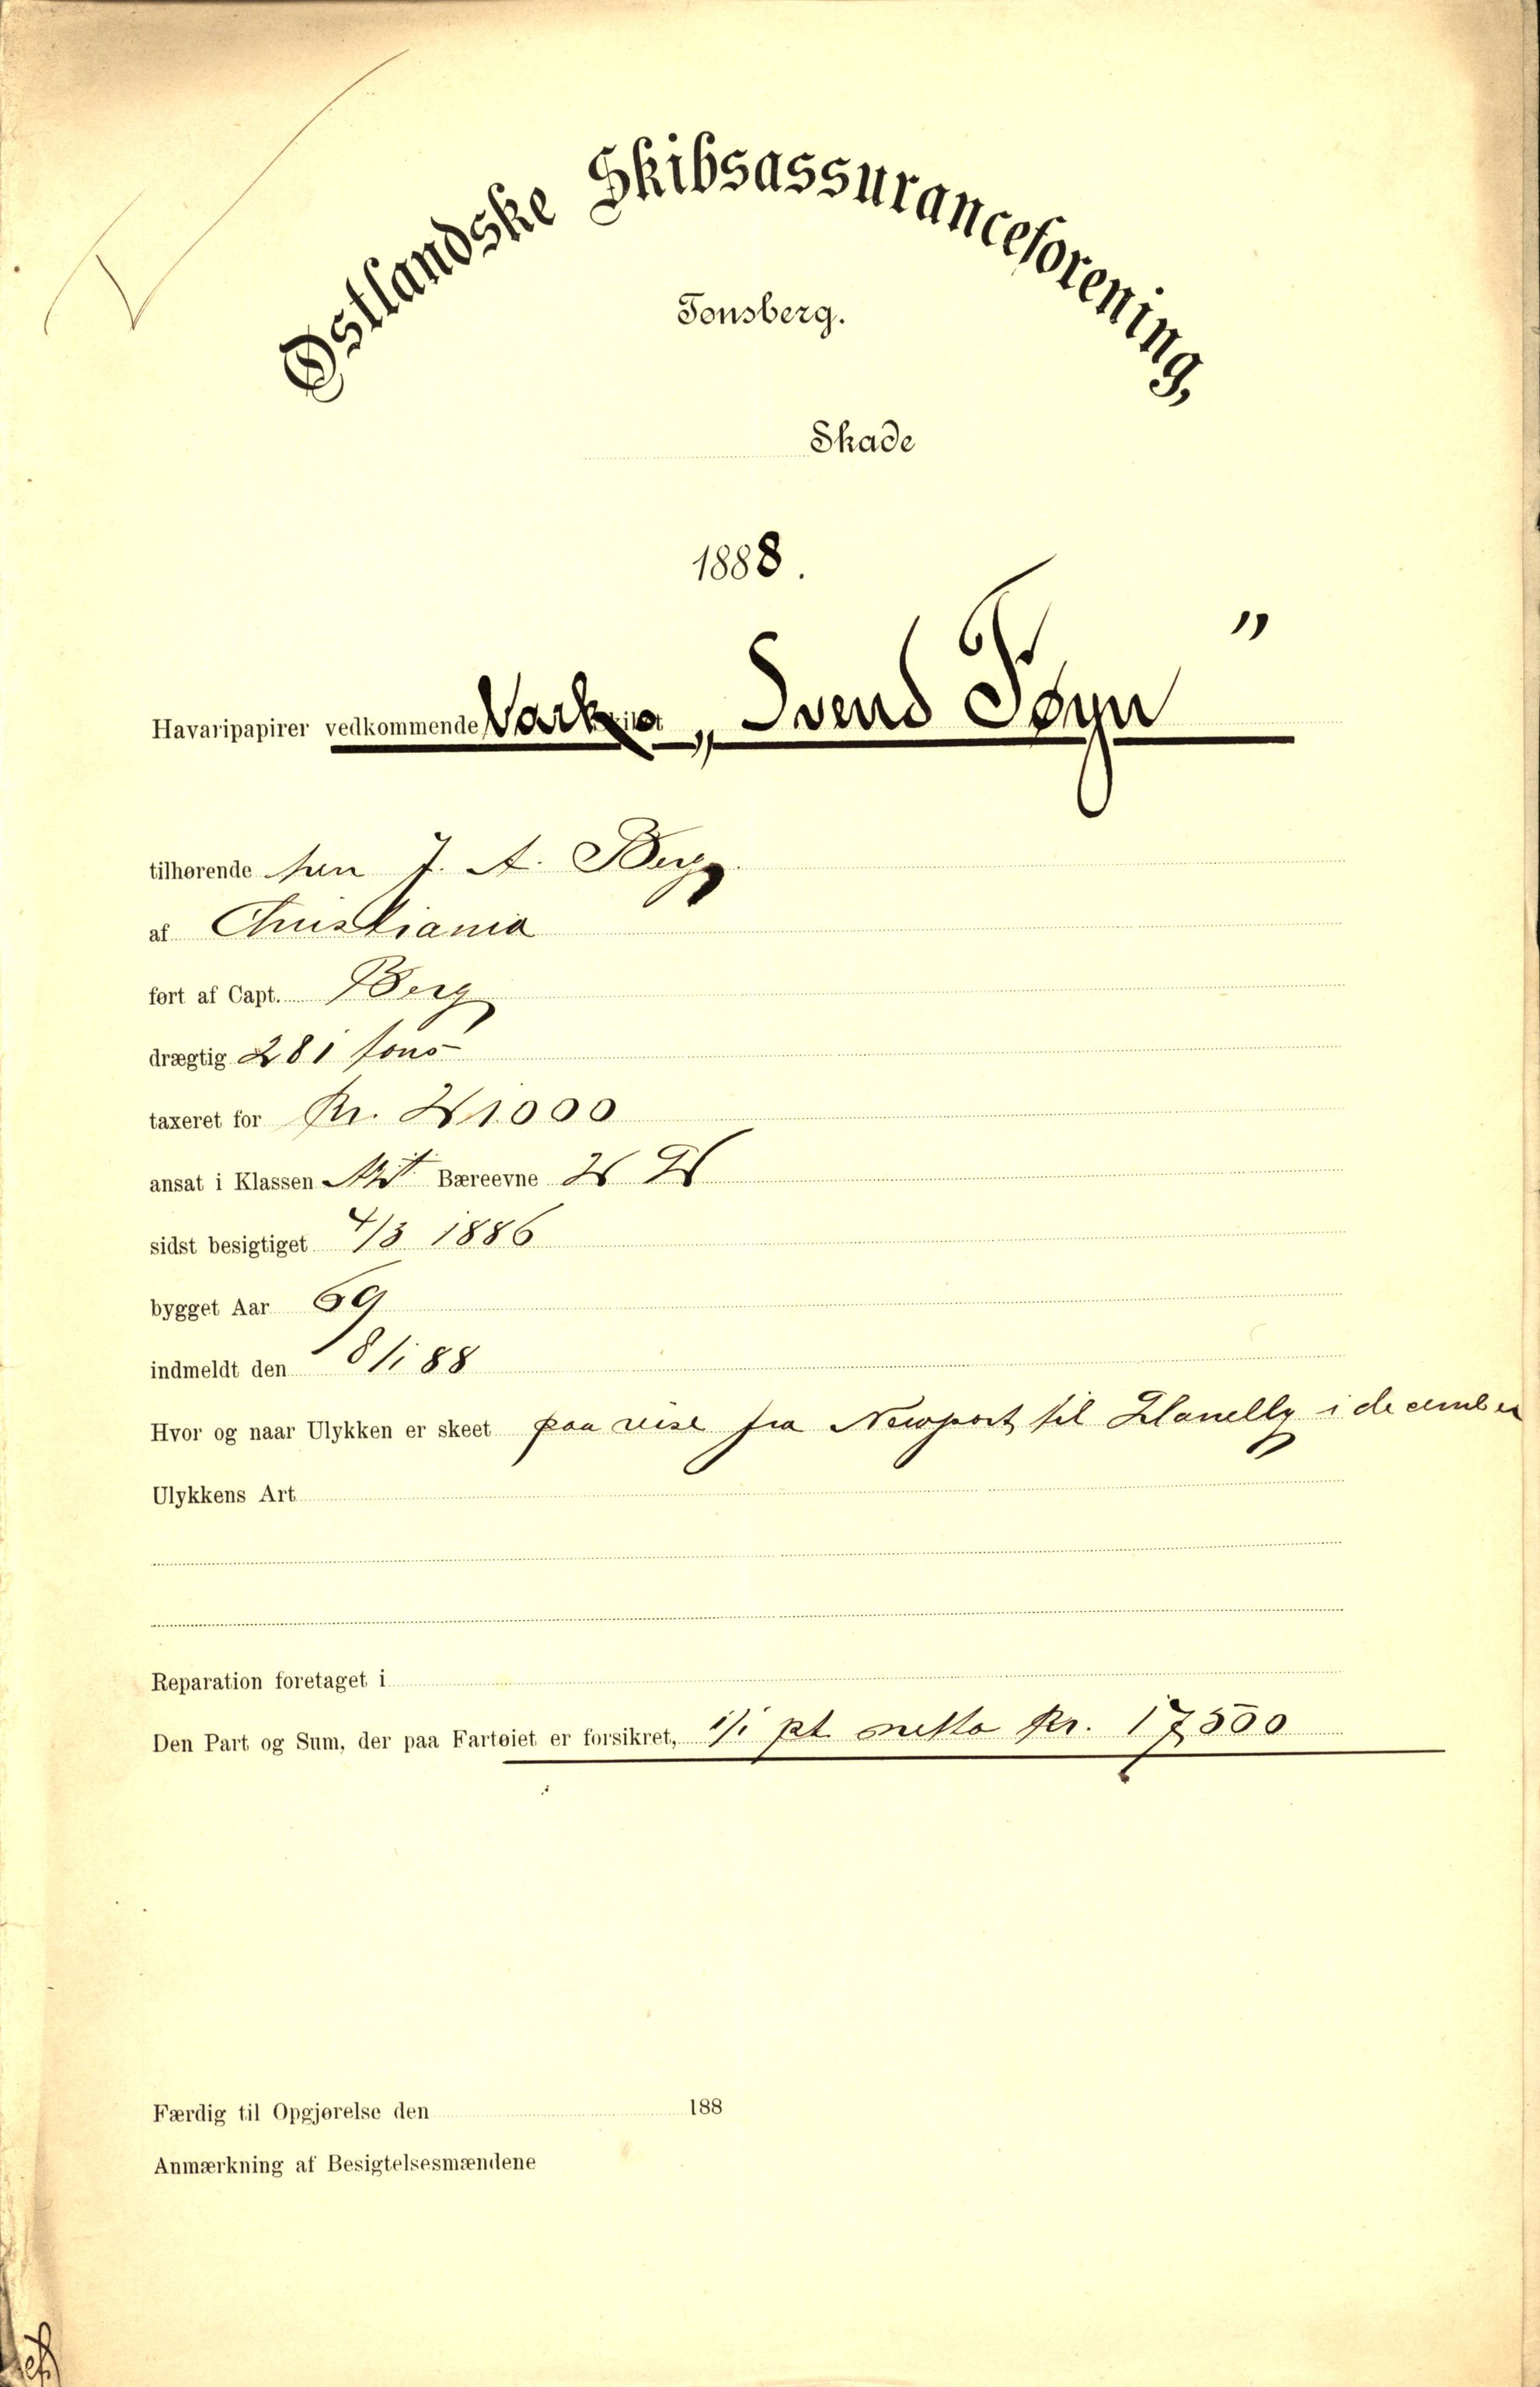 Østlandske Skibsassuranceforening,
Tønsberg.
Skade
1888.
Havaripapirer vedkommende „Svend Føyn"
tilhørende herr J. A. Berg.
af Christiania
ført af Capt. Berg
drægtig 281 tons
taxeret for Kr. 21000
ansat i Klassen Bæreevne
sidst besigtiget 4/3 1886
bygget Aar 69
indmeldt den 8/1 88
Hvor og naar Ulykken er skeet paa reise fra Newport til Llanelly i december
Ulykkens Art
Reparation foretaget i
Den Part og Sum, der paa Fartøiet er forsikret, 1/1 pt. netto Kr. 17500
Færdig til Opgjørelse den 188
Anmærkning af Besigtelsesmændene